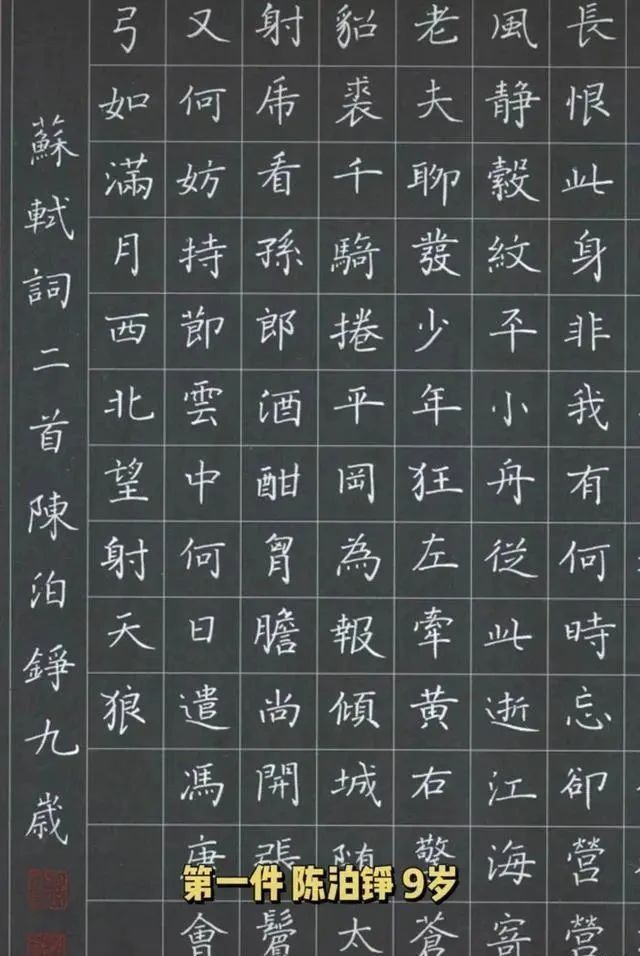 長恨此身非我有何時忘卻營營
風靜縠紋平小舟從此逝江海寄
老夫聊發少年狂左牽黃右擎蒼
貂裘千騎捲平岡為報傾城随太
射虎看孫郎酒酣胷膽尚開張鬢
又何妨持節雲中何日遣馮唐會
弓如滿月西北望射天狼
蘇軾詞二首陳泊錚九歲
第一件 陈泊铮 9岁